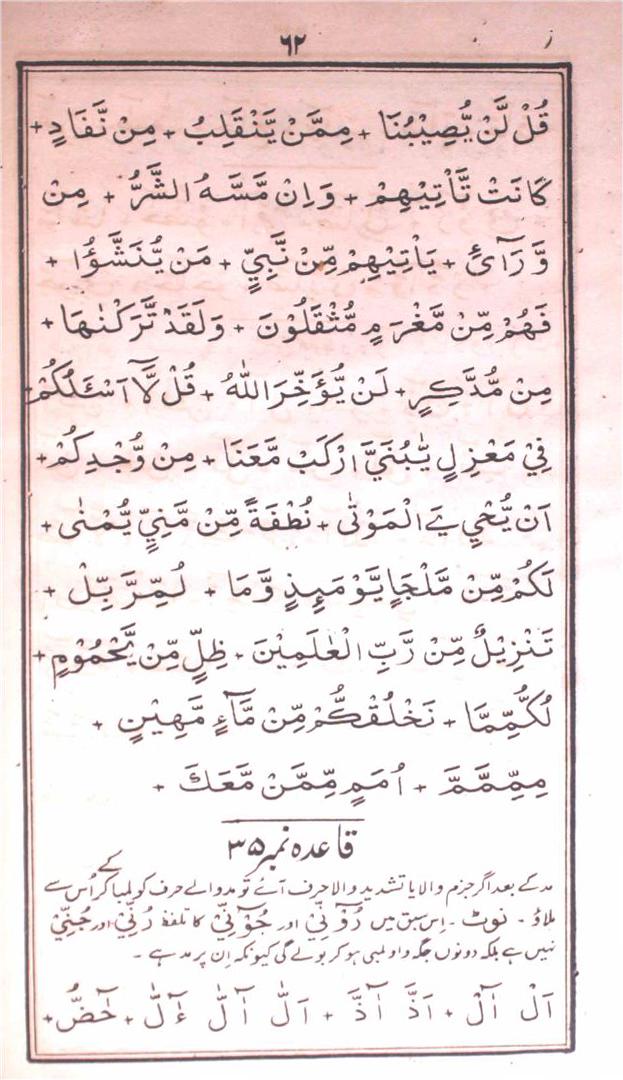 ٦٢
قُلْ لَّنْ يُّصِيْبُنَا + مِمَّنْ يَّنْقَلِبُ + مِنْ نَّفَادٍ +
كَانَتْ تَّاْتِيْهِمْ + وَاِنْ مَّسَّهُ الشَّرُّ + مِنْ
وَّرَآئِ + يَاْتِيْهِمْ مِّنْ نَّبِيٍّ + مَنْ يُّنَشَّؤُا +
فَهُمْ مِّنْ مَّغْرَمٍ مُّثْقَلُوْنَ + وَلَقَدْ تَّرَكْنٰهَا +
مِنْ مُّدَّكِرٍ + لَنْ يُّؤَخِّرَ اللّٰهُ + قُلْ لَّآ اَسْئَلُكُمْ +
فِيْ مَعْزِلٍ يّٰبُنَيَّ ارْكَبْ مَّعَنَا + مِنْ وُّجْدِكُمْ +
اَنْ يُّحْيِ يَ الْمَوْتٰى + نُطْفَةً مِّنْ مَّنِيٍّ يُّمْنٰى +
لَكُمْ مِّنْ مَّلْجَاٍ يَّوْمَئِذٍ وَّمَا + لُمِّرَّ بِّلْ +
تَنْزِيْلٌ مِّنْ رَّبِّ الْعٰلَمِيْنَ + ظِلٍّ مِّنْ يَّحْمُوْمٍ +
لُكُّمِّمَّا + نَخْلُقْكُّمْ مِّنْ مَّآءٍ مَّهِيْنٍ +
مِمِّمَّمَّ + اُمَمٍ مِّمَّنْ مَّعَكَ +
قاعدہ نمبر ۳۵
مد کے بعد اگر جزم والا یا تشدید والا حرف آئے تو مد والے حرف کو لمبا کر کے اُس سے
ملاؤ - نوٹ - اِس سبق میں دُوْٓنِّيْ اور جُوْٓنِّيْ کا تلفظ دُنِّيْ اور جُنِّيْ
نہیں ہے بلکہ دونوں جگہ واو لمبی ہو کر بولے گی کیونکہ اِن پر مد ہے -
اَلْ آلْ + اَذَّ آذَّ + اَلّٰ آلّٰ ءٰٓلّٰ + حَآضُّ +